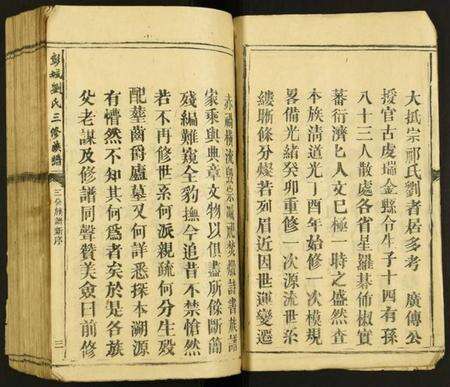 大抵宗祁氏劉者居多考 廣傳公
授官古虔瑞金縣令生子十四有孫
八十三人散處各省星羅碁佈椒實
蕃衍濟匕人文已極一時之盛然查
本族清道光丁酉年始修一次模規
畧備光緒癸卯重修一次源流世系
縷晰條分燦若列眉近因世運變遷
赤禍橫流宗祠焚燬詩書族譜
家乘與典章文物以俱盡所餘斷簡
殘編難窺全豹撫今追昔不禁愴然
若不再修世系何派親疏何分生殁
配塟齒爵廬墓又何詳悉探本溯源
有懵然不知其何為者矣於是各族
父老謀及修譜同聲贊美僉曰前修
彭城劉氏三修族譜
三公族譜新序
三